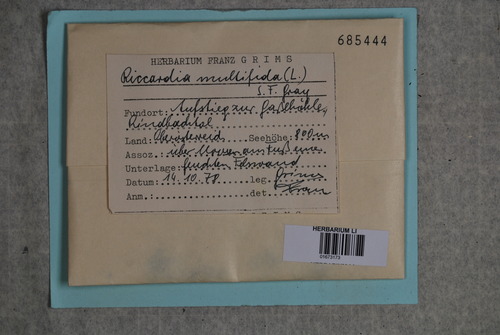 685444
HERBARIUM FRANZ GRIMS
Riccardia multifida (L.)
S.F. Gray
Fundort: Aufstieg zur Gaßlhöhle,
Rindbachtal
Land: Oberösterreich Seehöhe: 800m
Assoz. über Moosen am Fuß einer
Unterlage: feuchten Felswand
Datum: 14.10.78 leg. Grims
Anm.: det. Grims
HERBARIUM LI
01673173